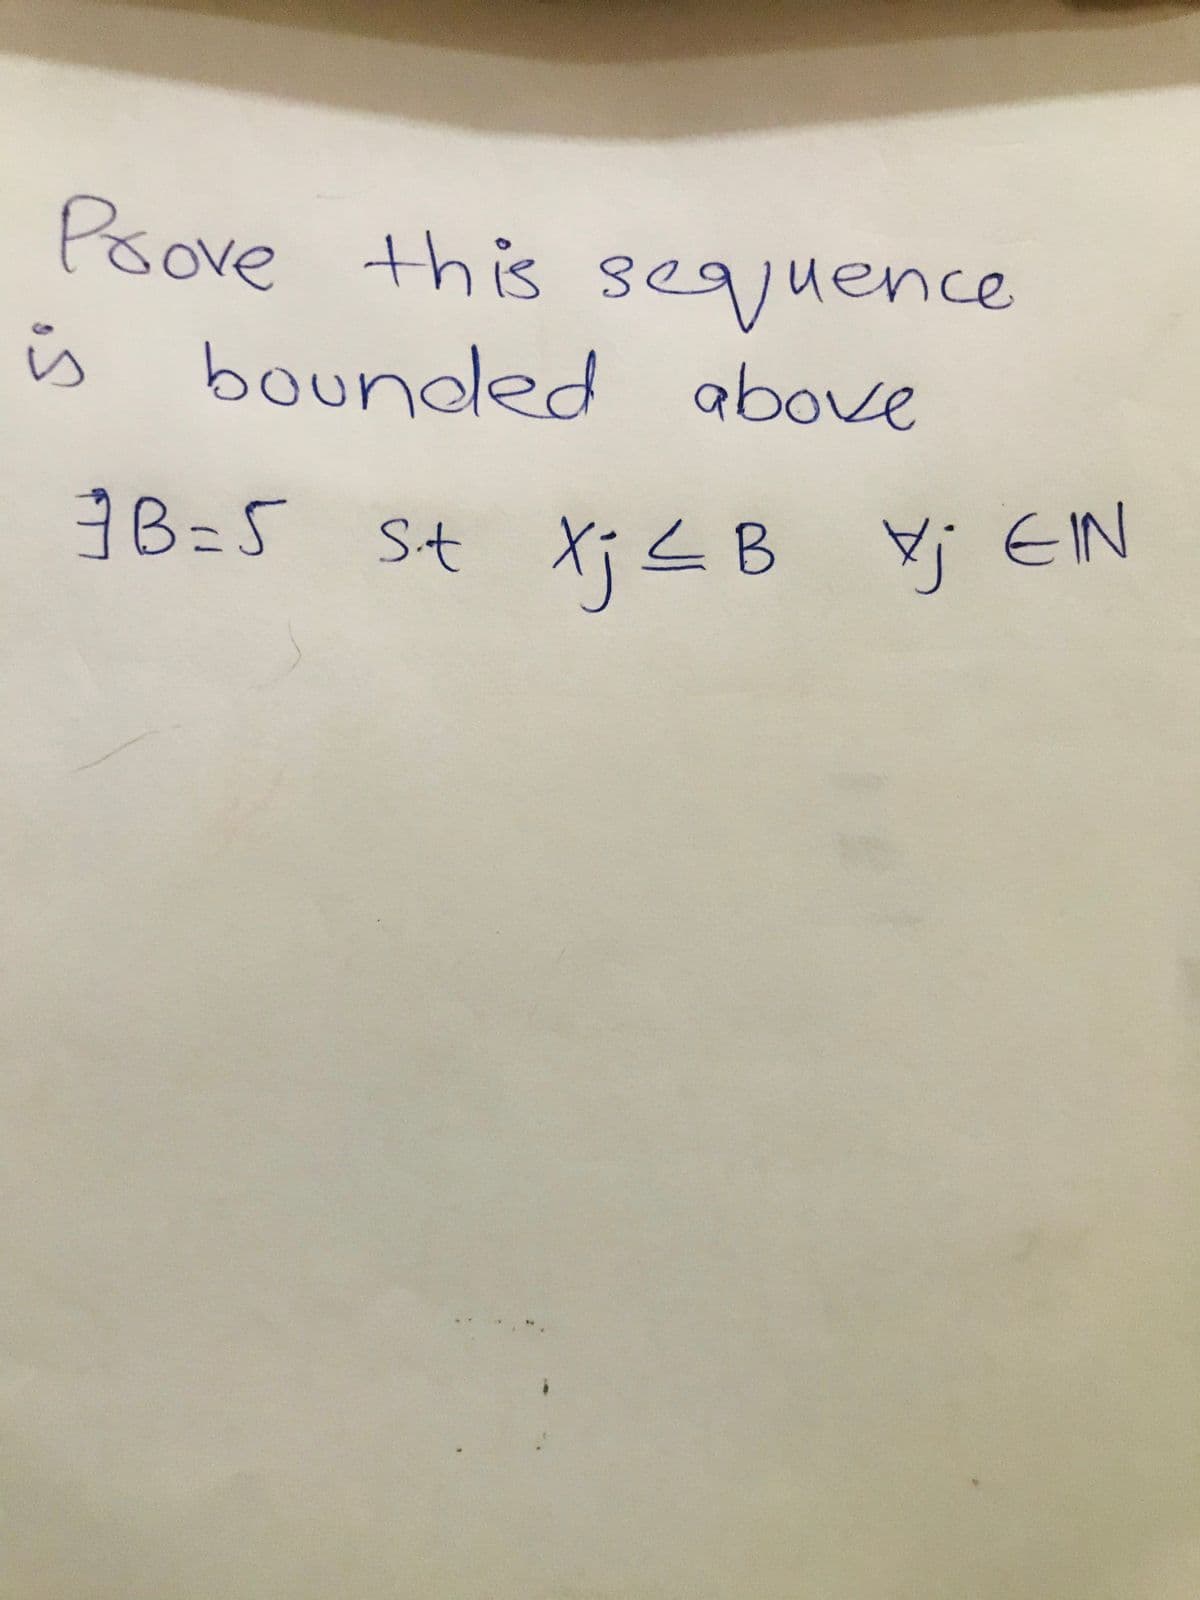 Prove this sequence
is bounded above
∃B=5 s.t Xj ≤ B ∀j ∈ ℕ